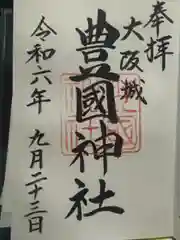 奉拝
大阪城
豊國神社
令和六年
九月二十三日